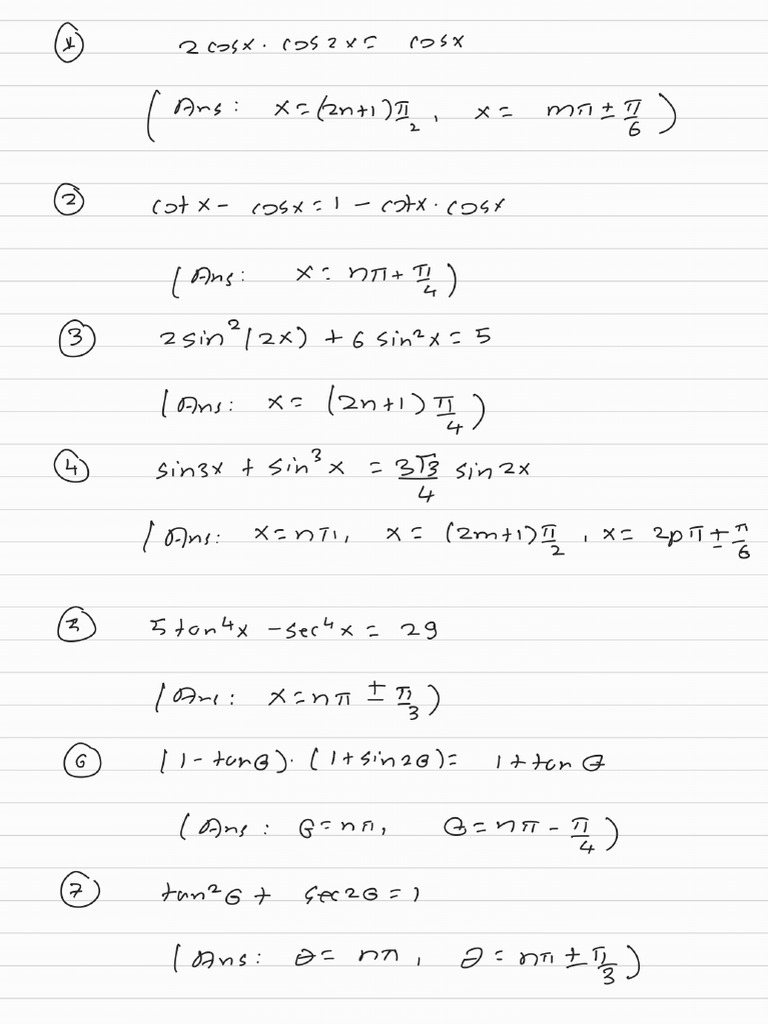 ① 2 cosx · cos2x = cosx
(Ans: x = (2n+1)π/2, x = mπ ± π/6)
② cotx - cosx = 1 - cotx · cosx
(Ans: x = nπ + π/4)
③ 2sin²(2x) + 6 sin²x = 5
(Ans: x = (2n+1)π/4)
④ sin3x + sin³x = 3√3/4 sin2x
(Ans: x = nπ, x = (2m+1)π/2, x = 2pπ ± π/6
⑤ 5tan⁴x - sec⁴x = 29
(Ans: x = nπ ± π/3)
⑥ (1 - tanθ) · (1 + sin2θ) = 1 + tanθ
(Ans: θ = nπ, θ = nπ - π/4)
⑦ tan²θ + sec2θ = 1
(Ans: θ = nπ, θ = nπ ± π/3)